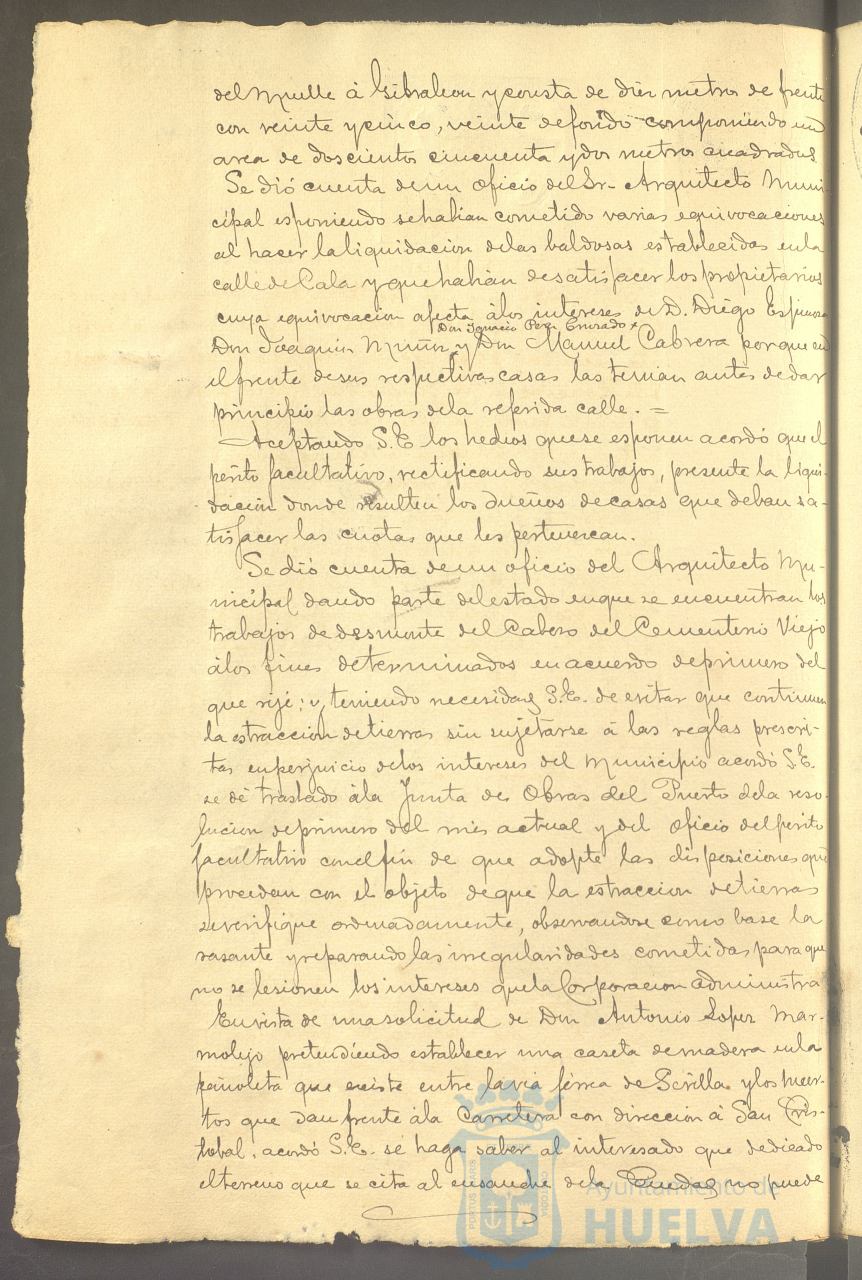 del Muelle á Gibraleon y consta de diez metros de frente
con veinte y cinco, veinte de fondo componiendo un
area de doscientos cincuenta y dos metros cuadrados
Se dió cuenta de un oficio del Sr. Arquitecto Muni-
cipal esponiendo se habian cometido varias equivocaciones
al hacer la liquidacion de las baldosas establecidas en la
calle de Cala y que habian de satisfacer los propietarios
cuya equivocacion afecta á los intereses de D. Diego Espinosa
Don Ignacio Perez
Don Joaquin Muñoz y Don Manuel Cabrera porque en
el frente de sus respectivas casas las tenian antes de dar
principio las obras de la referida calle. =
Aceptando S.E. los hechos que se esponen acordó que el
perito facultativo, rectificando sus trabajos, presente la liqui-
dacion donde resulten los dueños de casas que deban sa-
tisfacer las cuotas que les pertenezcan.
Se dió cuenta de un oficio del Arquitecto Mu-
nicipal dando parte del estado en que se encuentran los
trabajos de desmonte del Cabezo del Cementerio Viejo
á los fines determinados en acuerdo de primero del
que rije; y teniendo necesidad S.E. de evitar que continuen
la estraccion de tierras sin sujetarse á las reglas prescri-
tas en perjuicio de los intereses del Municipio acordó S.E.
se dé traslado á la Junta de Obras del Puerto de la reso-
lucion de primero del mes actual y del oficio del perito
facultativo con el fin de que adopte las disposiciones que
procedan con el objeto de que la estraccion de tierras
se verifique ordenadamente, observandose como base la
rasante y reparando las irregularidades cometidas para que
no se lesionen los intereses que la Corporacion administra
En vista de una solicitud de Don Antonio Lopez Mar-
molejo pretendiendo establecer una caseta de madera en la
pañoleta que existe entre la via férrea de Sevilla y los huer-
tos que dan frente á la Carretera con direccion á San Cris-
tobal, acordó S.E. se haga saber al interesado que dedicado
el terreno que se cita al ensanche de la no puede
Ayuntamiento de
HUELVA
PORTUS MARIS